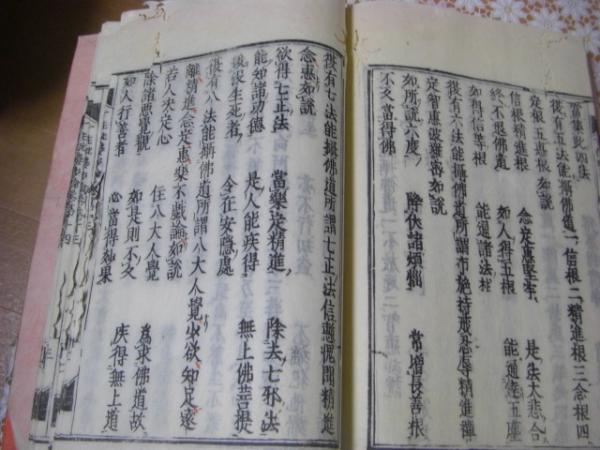 當集此四法
復有五法能攝佛道一信根二精進根三念根四
定根五惠根如說
信根精進根　念定惠堅牢　是法大悲合
終不退佛道　如人得五根　能通達五塵
如得信等根　能通諸法相
復有六法能攝佛道所謂布施持戒忍辱精進禪
定智惠波羅蜜如說
如所說六度　降伏諸煩惱　常增長善根
不久當得佛
復有七法能攝佛道所謂七正法信慙愧聞精進
念惠如說
欲得七正法　當樂定精進　除去七邪法
能知諸功德　是人能疾得　無上佛菩提
拔沒生死者　令在安隱處
復有八法能攝佛道所謂八大人覺少欲知足遠
離精進念定惠樂不戲論如說
若人決定心　住八大人覺　為求佛道故
除諸惡覺觀　如是則不久　疾得無上道
如人行善者　必當得妙果